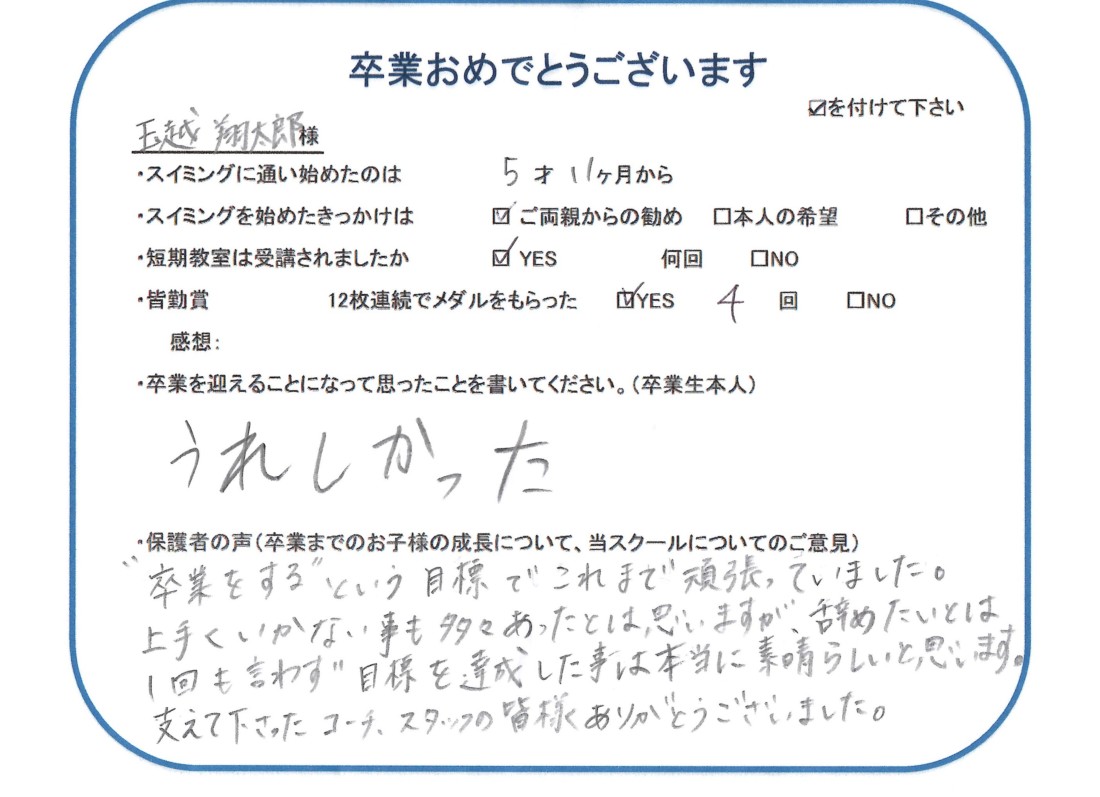 卒業おめでとうございます
☑を付けて下さい
玉越 翔太郎様
・スイミングに通い始めたのは 5 才 11ヶ月から
・スイミングを始めたきっかけは ☑ご両親からの勧め □本人の希望 □その他
・短期教室は受講されましたか ☑YES 何回 □NO
・皆勤賞 12枚連続でメダルをもらった ☑YES 4 回 □NO
感想:
・卒業を迎えることになって思ったことを書いてください。(卒業生本人)
うれしかった
・保護者の声(卒業までのお子様の成長について、当スクールについてのご意見)
"卒業をする"という目標でこれまで頑張っていました。
上手くいかない事も多々あったとは思いますが、辞めたいとは
1回も言わず目標を達成した事は本当に素晴らしいと思います。
支えて下さったコーチ、スタッフの皆様、ありがとうございました。